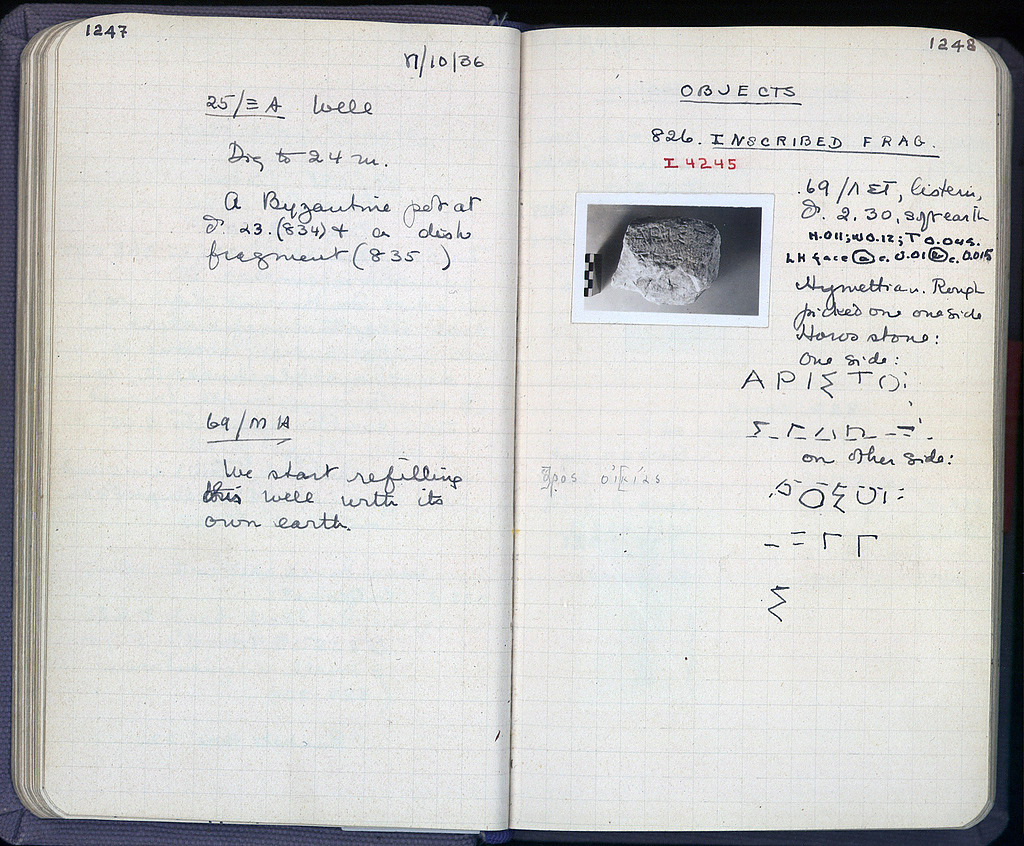 1247
17/10/36
25/Ξ A Well
Dig to 24 m.
A Byzantine pot at
d. 23. (834) + a dish
fragment (835 )
69/M A
We start refilling
this well with its
own earth.
1248
OBJECTS
826. INSCRIBED FRAG.
I 4245
69/Λ ΣΤ, cistern,
d. 2.30, soft earth
H.011; W 0.12; T 0.045.
LH face ⓐ c. 0.01 ⓑ c. 0.015
Hymettian. Rough
picked on one side
stone:
One side:
Α Ρ Ι Σ Τ Ο
on other side:
Ο Σ
Σ